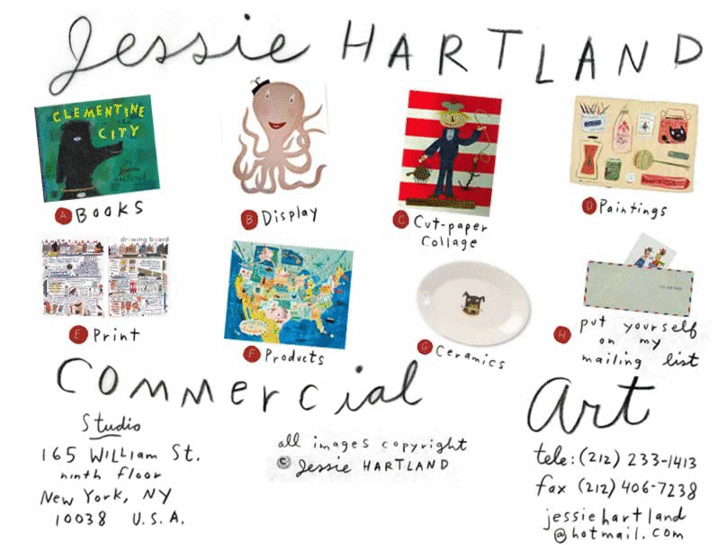 Jessie HARTLAND
CLEMENTINE
CITY
A BOOKS
B Display
C Cut-paper
Collage
D Paintings
drawing board
E Print
F Products
G Ceramics
H put yourself
on my
mailing list
Commercial Art
Studio
165 William St.
ninth floor
New York, NY
10038 U.S.A.
all images copyright
© Jessie HARTLAND
tele: (212) 233-1413
fax (212) 406-7238
jessiehartland
@hotmail.com